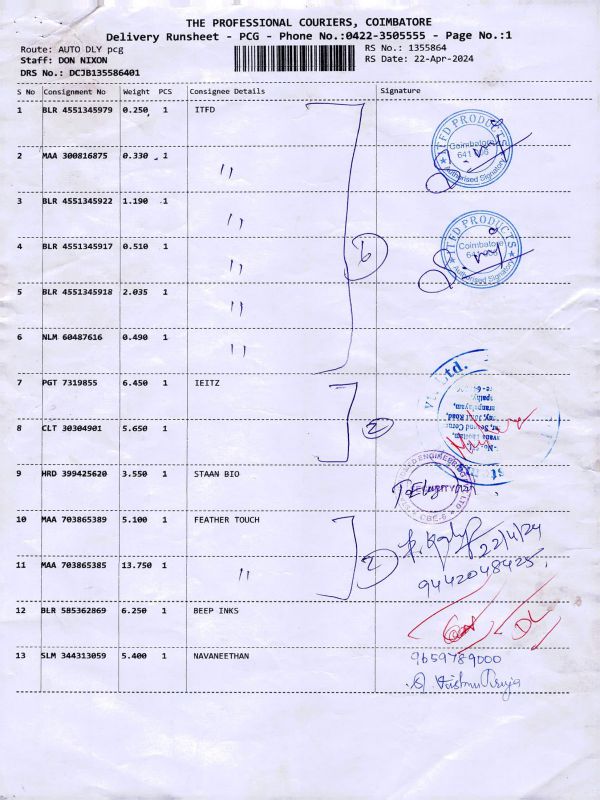 THE PROFESSIONAL COURIERS, COIMBATORE
Delivery Runsheet - PCG - Phone No.:0422-3505555 - Page No.:1
Route: AUTO DLY pcg
RS No.: 1355864
Staff: DON NIXON
RS Date: 22-Apr-2024
DRS No.: DCJB135586401
S No Consignment No Weight PCS Consignee Details Signature
1 BLR 4551345979 0.250 1 ITFD
ITFD PRODUCTS
Coimbatore
Authorised Signatory
2 MAA 300816875 0.330 1 ''
3 BLR 4551345922 1.190 1 ''
4 BLR 4551345917 0.510 1 ''
6
ITFD PRODUCTS
Coimbatore
Authorised Signatory
5 BLR 4551345918 2.035 1 ''
6 NLM 60487616 0.490 1 ''
7 PGT 7319855 6.450 1 IEITZ
8 CLT 30304901 5.650 1
2
9 HRD 399425620 3.550 1 STAAN BIO
SECURITY
CBE-6
10 MAA 703865389 5.100 1 FEATHER TOUCH
22/4/24
11 MAA 703865385 13.750 1 ''
2
9442048425
12 BLR 585362869 6.250 1 BEEP INKS
13 SLM 344313059 5.400 1 NAVANEETHAN
9659789000